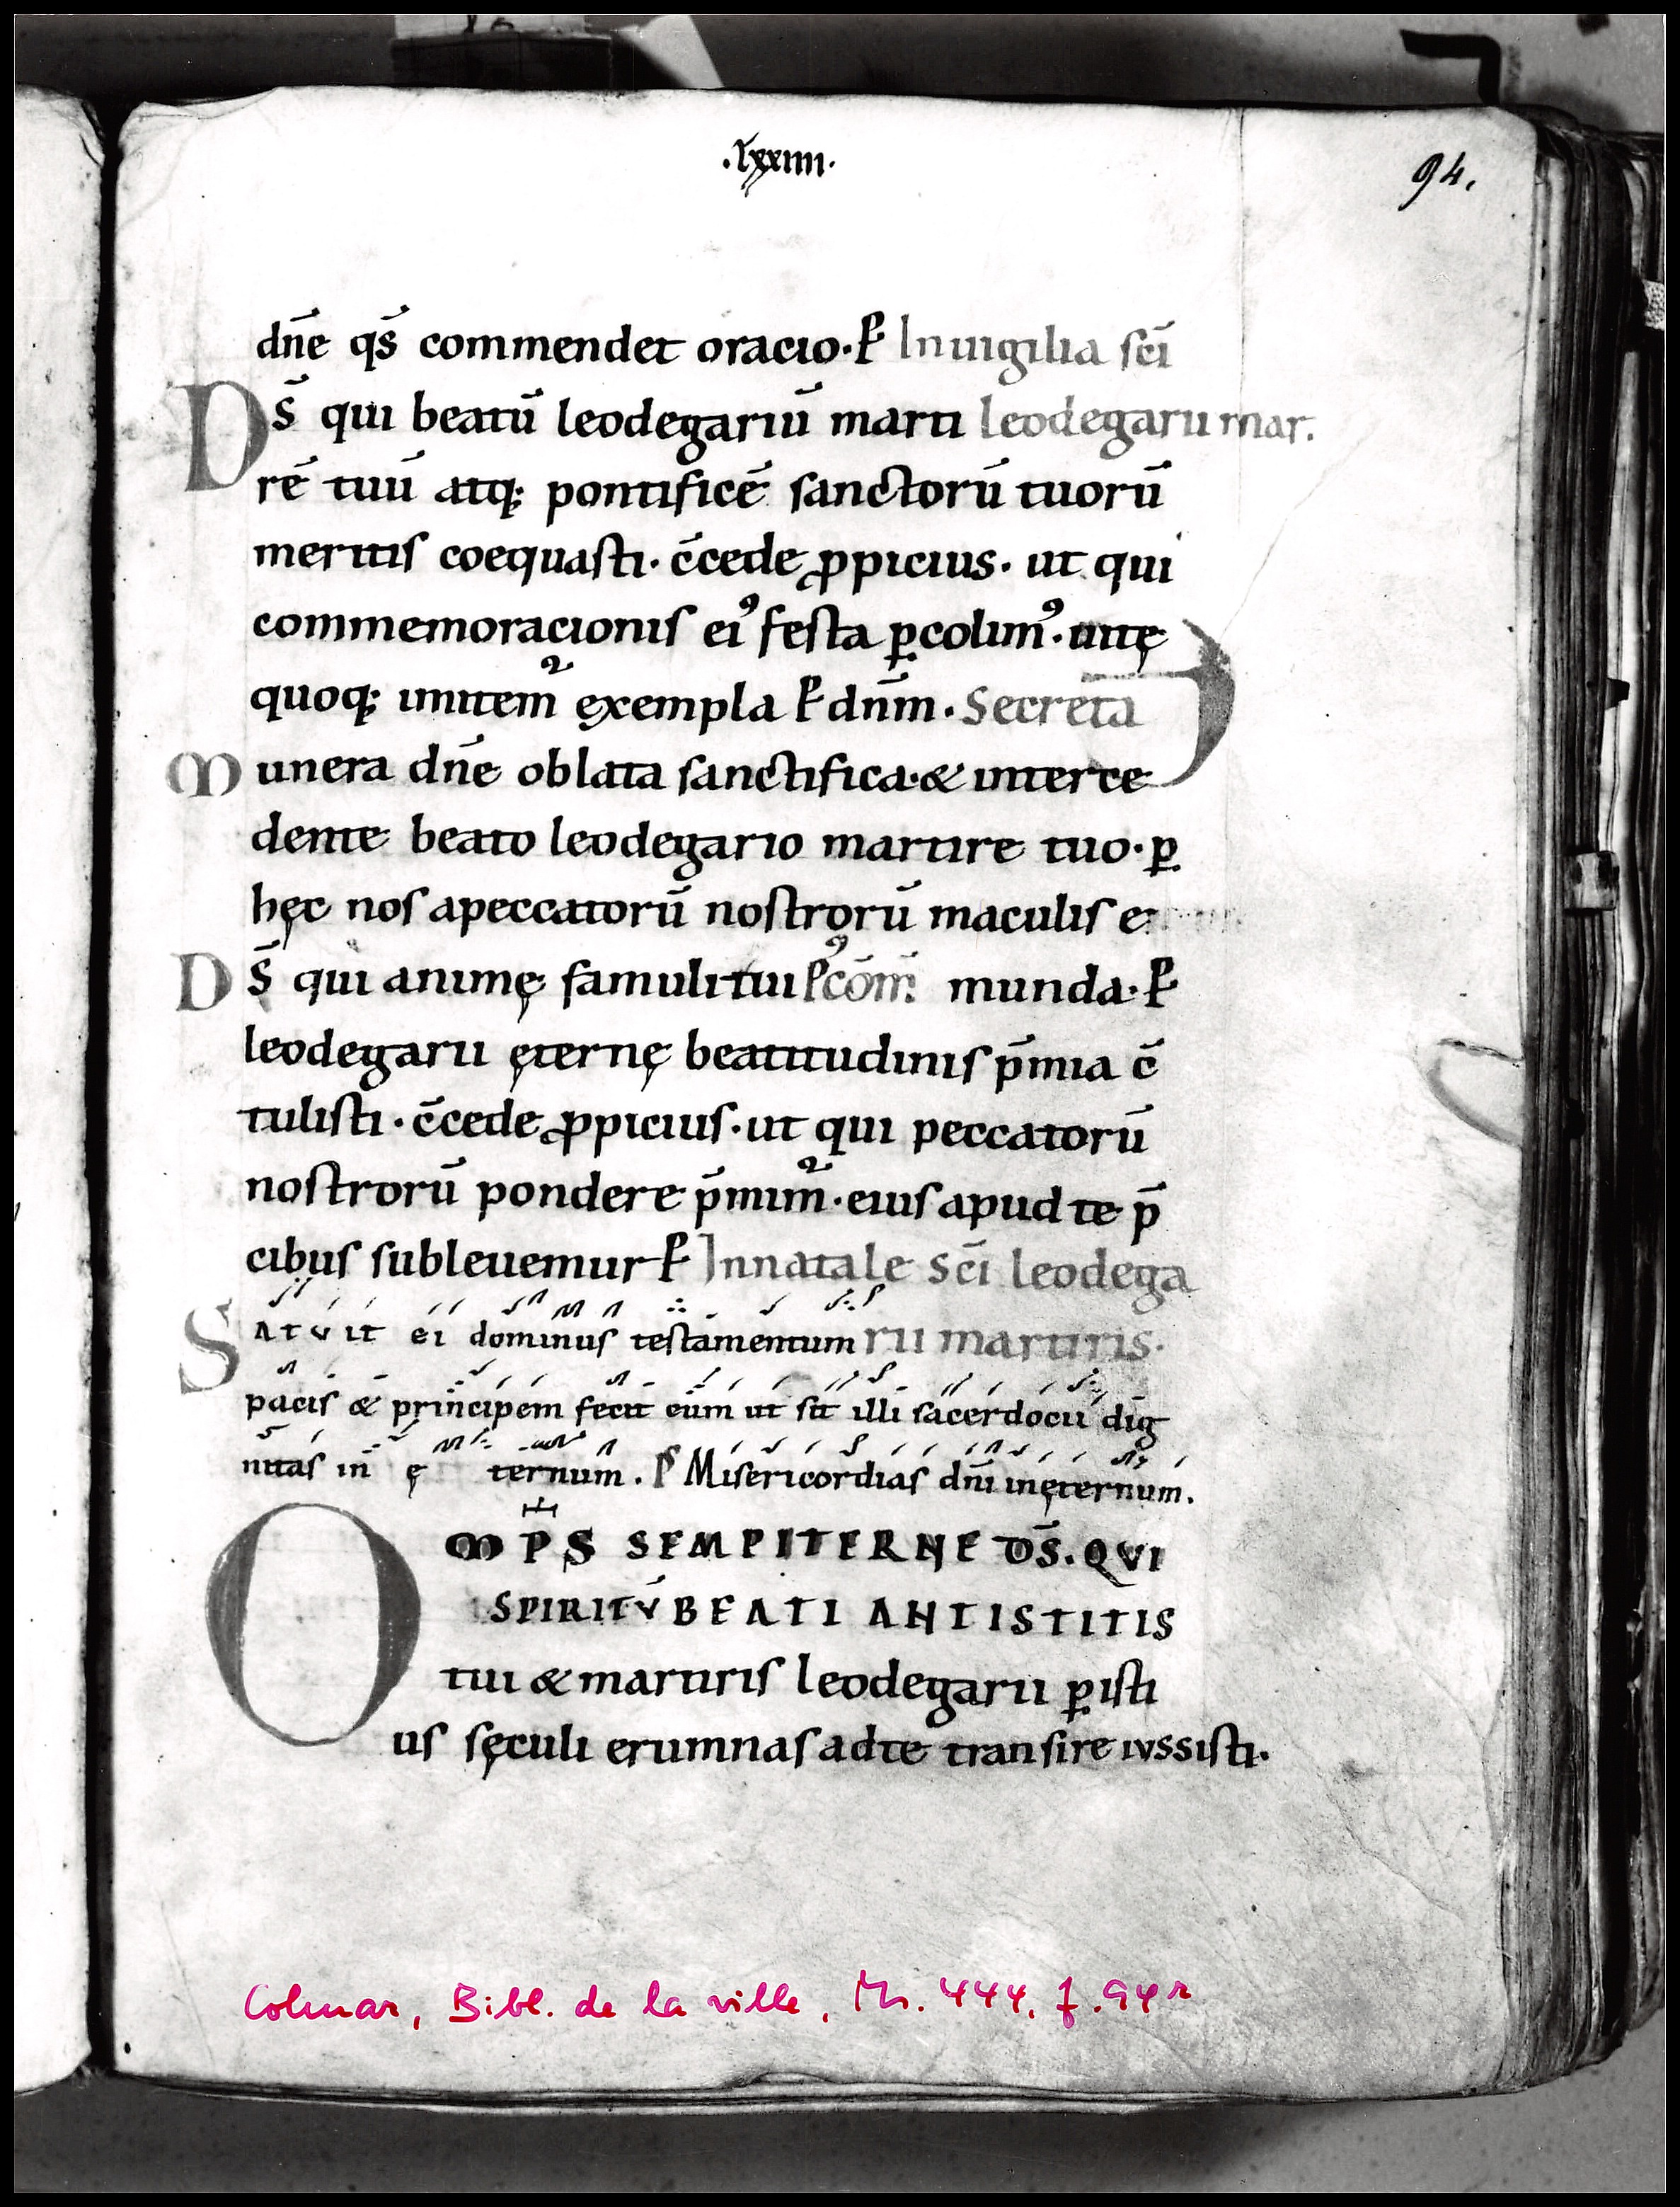 .lxxiiii.
94.
dn̄e qs̄ commendet oracio. P In uigilia sc̄i
Ds̄ qui beatū leodegariū marti leodegarii mar.
rē tuū atq; pontificē sanctorū tuorū
meritis coequasti. c̄cede ꝓpicius. ut qui
commemoracionis eiꝰ festa ꝑcolimꝰ. uitę
quoq; imitem᷑ exempla P dn̄m. Secreta
Munera dn̄e oblata sanctifica. & interce
dente beato leodegario martire tuo. ꝑ
hęc nos apeccatorū nostrorū maculis e
Ds̄ qui animę famuli tui Pꝰcōm̄ munda. P
leodegarii ęternę beatitudinis p̄mia c̄
tulisti. c̄cede ꝓpicius. ut qui peccatorū
nostrorū pondere p̄mim᷑. eius apud te p̄
cibus subleuemur P In natale sc̄i leodega
Satuit ei dominus testamentum rii martiris.
pacis & principem fecit eum ut sit illi sacerdocii dig
nitas in ęternum. Ps Misericordias dn̄i in ęternum.
OMPS SEMPITERNE DS̄. QVI
SPIRITV̄ BEATI ANTISTITIS
tui & martiris leodegarii ꝑ isti
us sęculi erumnas ad te transire iussisti.
Colmar, Bibl. de la ville, Ms. 444, f. 94r